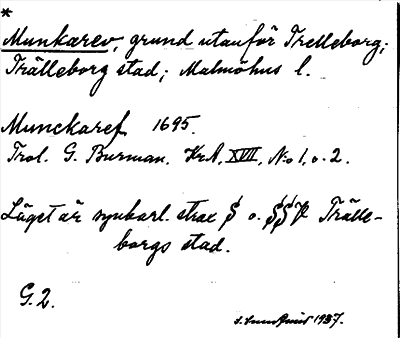 *
Munkarev, grund utanför Trelleborg;
Trälleborg stad; Malmöhus l.
Munckaref 1695.
Trol. G. Burman. KrA, XVII, No 1, o. 2.
Läget är synbarl. strax S o. SSV Trälle-
borgs stad.
G. 2.
1937.